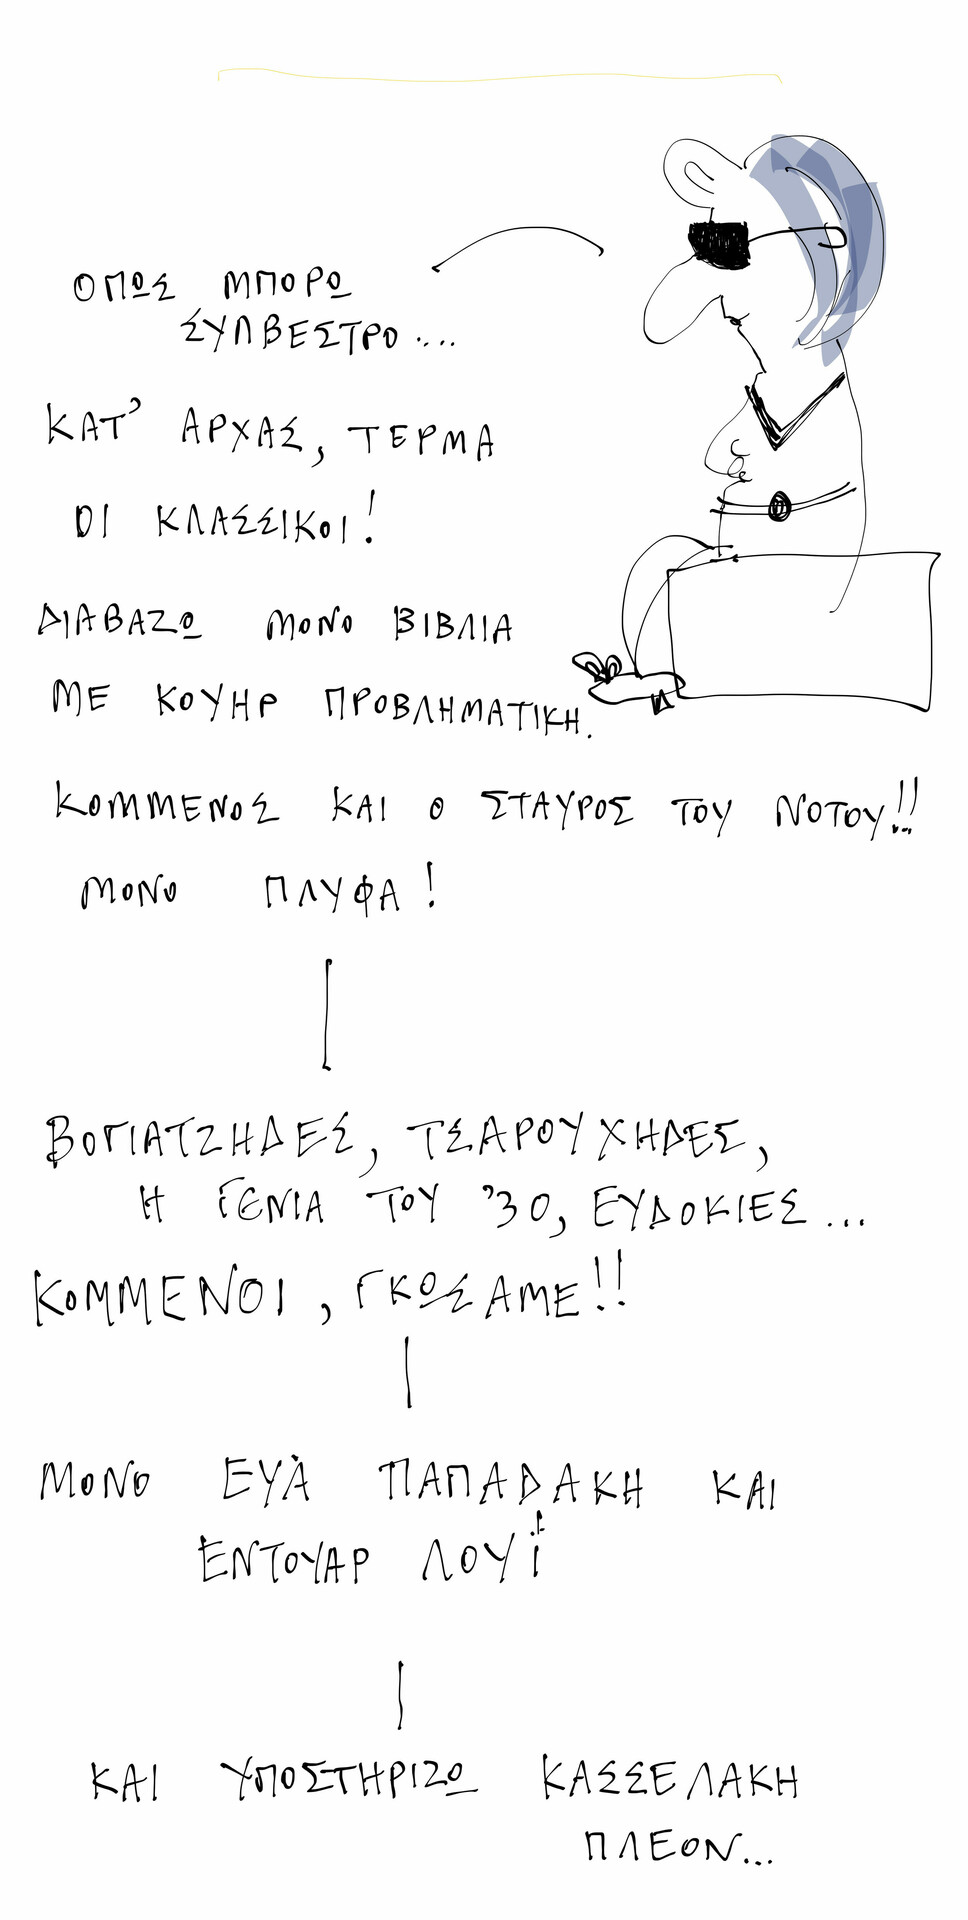 ΟΠΩΣ ΜΠΟΡΩ
ΣΥΛΒΕΣΤΡΟ....
ΚΑΤ' ΑΡΧΑΣ, ΤΕΡΜΑ
ΟΙ ΚΛΑΣΣΙΚΟΙ!
ΔΙΑΒΑΖΩ ΜΟΝΟ ΒΙΒΛΙΑ
ΜΕ ΚΟΥΗΡ ΠΡΟΒΛΗΜΑΤΙΚΗ.
ΚΟΜΜΕΝΟΣ ΚΑΙ Ο ΣΤΑΥΡΟΣ ΤΟΥ ΝΟΤΟΥ!!
ΜΟΝΟ ΠΛΥΦΑ!
ΒΟΓΙΑΤΖΗΔΕΣ, ΤΣΑΡΟΥΧΗΔΕΣ,
Η ΓΕΝΙΑ ΤΟΥ '30, ΕΥΔΟΚΙΕΣ...
ΚΟΜΜΕΝΟΙ, ΓΚΩΣΑΜΕ!!
ΜΟΝΟ ΕΥΑ ΠΑΠΑΔΑΚΗ ΚΑΙ
ΕΝΤΟΥΑΡ ΛΟΥΪ
ΚΑΙ ΥΠΟΣΤΗΡΙΖΩ ΚΑΣΣΕΛΑΚΗ
ΠΛΕΟΝ...